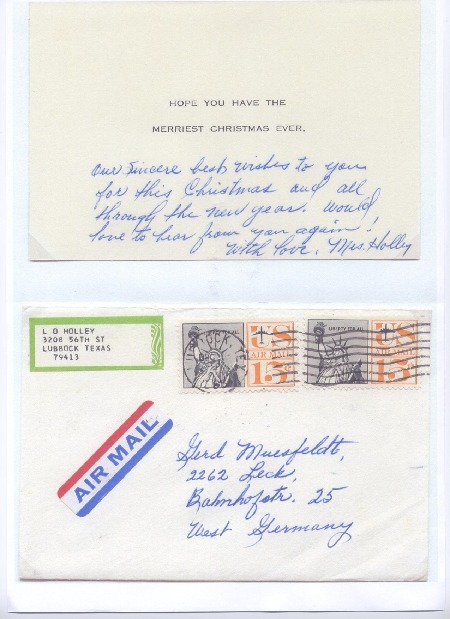 HOPE YOU HAVE THE
MERRIEST CHRISTMAS EVER.
Our Sincere best wishes to you
for this Christmas and all
through the new year. Would
love to hear from you again!
With love, Mrs. Holley
L O HOLLEY
3208 56TH ST
LUBBOCK TEXAS
79413
LIBERTY FOR ALL
US
AIR MAIL
15¢
LIBERTY FOR ALL
US
AIR MAIL
15¢
AIR MAIL
Gerd Muesfeldt,
2262 Leck,
Bahnhofstr. 25
West Germany